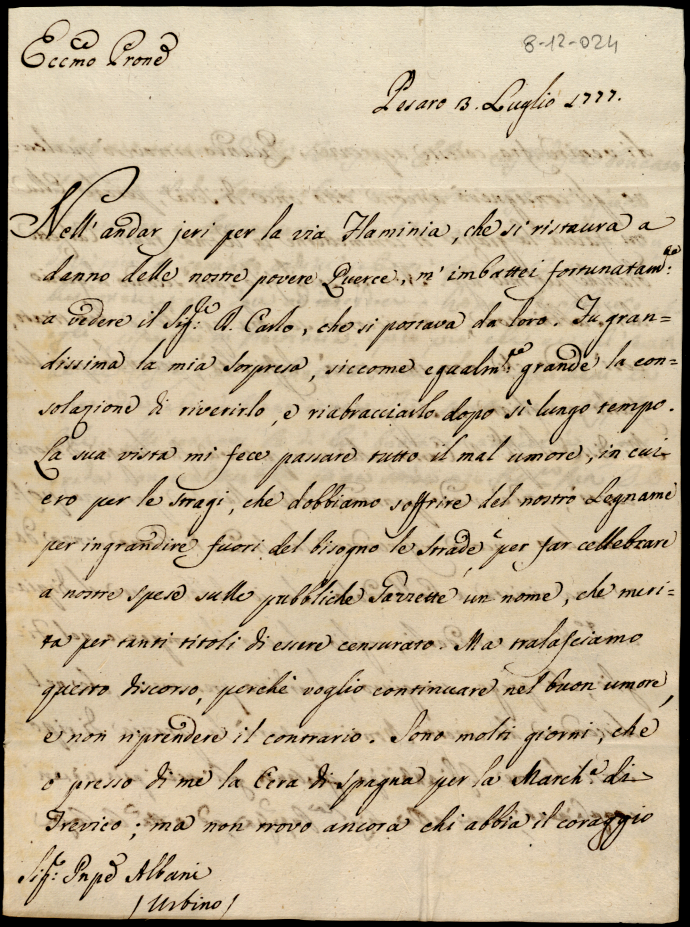 8-12-024
Eccmo Prone
Pesaro 13. Luglio 1777.
Nell' andar jeri per la via Flaminia, che si ristaura a
danno delle nostre povere Querce, m' imbattei fortunatam:te
a vedere il Sig:re D. Carlo, che si portava da loro. Fu gran=
dissima la mia sorpresa, siccome egualm:te grande la con=
solazione di riverirlo, e riabbracciarlo dopo si lungo tempo.
La sua vista mi fece passare tutto il mal umore, in cui
ero per le stragi, che dobbiamo soffrire del nostro Legname
per ingrandire fuori del bisogno le strade, per far cellebrare
a nostre spese sulle pubbliche Gazzette un nome, che meri=
ta per tanti titoli di essere censurato. Ma tralasciamo
questo discorso, perchè voglio continuare nel buon umore,
e non riprendere il contrario. Sono molti giorni, che
è presso di me la Cera di Spagna per la March:a di
Trevico; ma non trovo ancora chi abbia il coraggio
Sig:r Pnpe Albani
/Urbino/